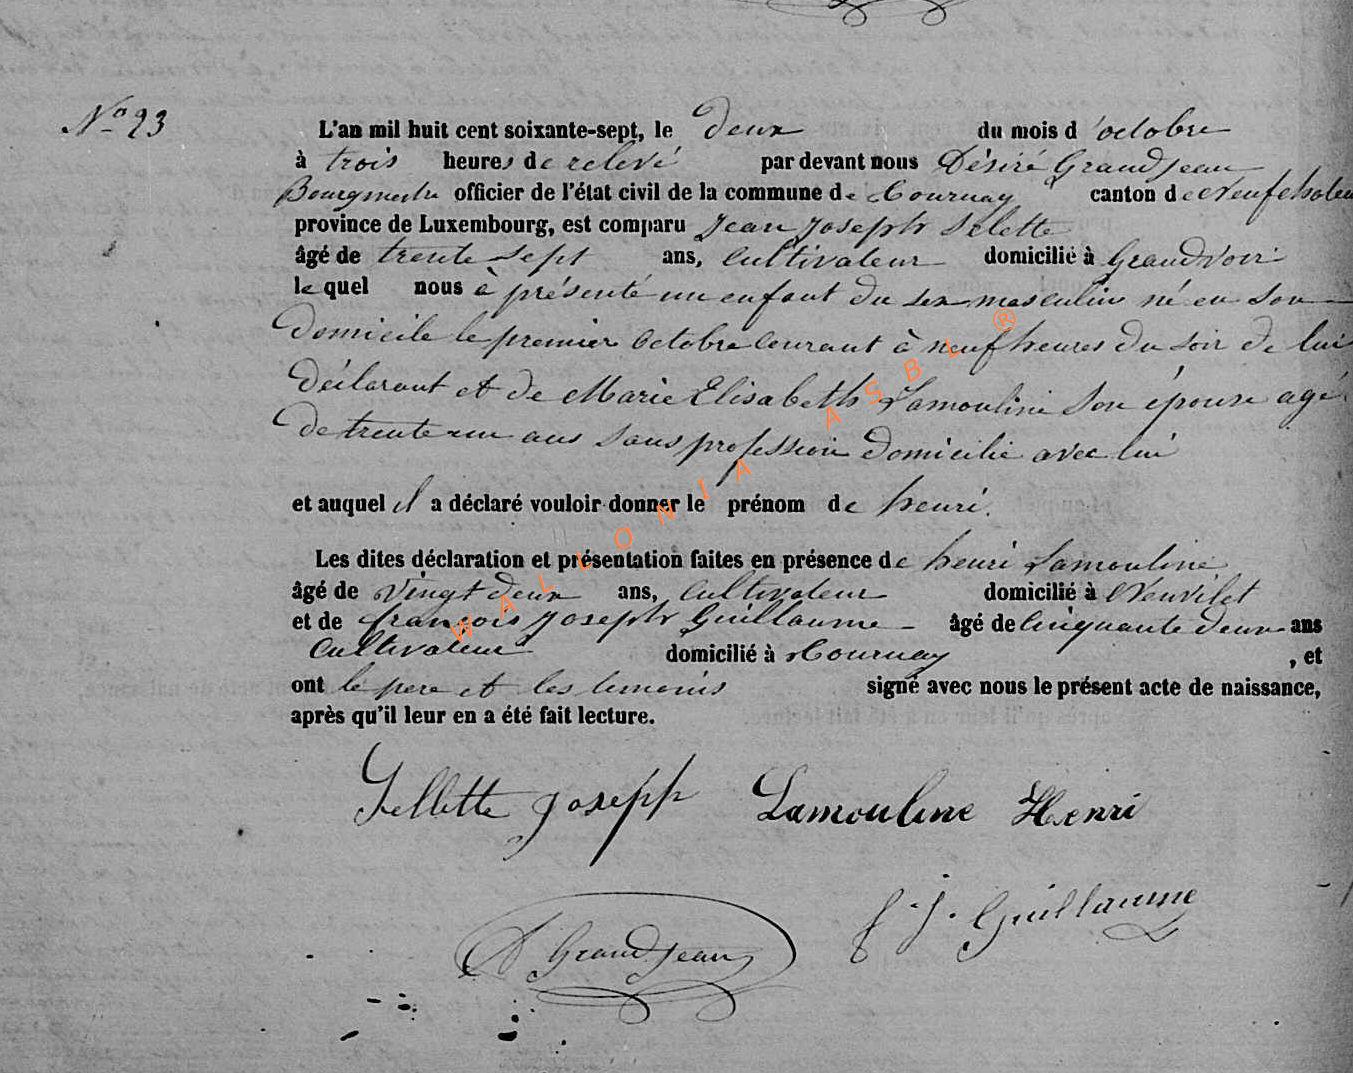 No 23
L'an mil huit cent soixante-sept, le deux du mois d'octobre
à trois heures de relevé par devant nous Désiré Grandjean
Bourgmestre officier de l'état civil de la commune de Tournay canton de Neufchateau
province de Luxembourg, est comparu Jean Joseph Selette
âgé de trente sept ans, cultivateur domicilié à Grandvoir
le quel nous à présenté un enfant du sex masculin né en son
domicile le premier octobre courant à neuf heures du soir de lui
déclarant et de Marie Elisabeth Lamouline son épouse agé
de trente un ans sans profession domicilié avec lui
et auquel il a déclaré vouloir donner le prénom de henri.
Les dites déclaration et présentation faites en présence de henri Lamouline
âgé de vingt deux ans, cultivateur domicilié à Neuvilet
et de françois Joseph Guillaume âgé de cinquante deux ans
cultivateur domicilié à Tournay , et
ont le pere et les temoins signé avec nous le présent acte de naissance,
après qu'il leur en a été fait lecture.
Sellette Joseph Lamouline Henri
f. j. Guillaume
D Grandjean
WALLONIA ASBL ®